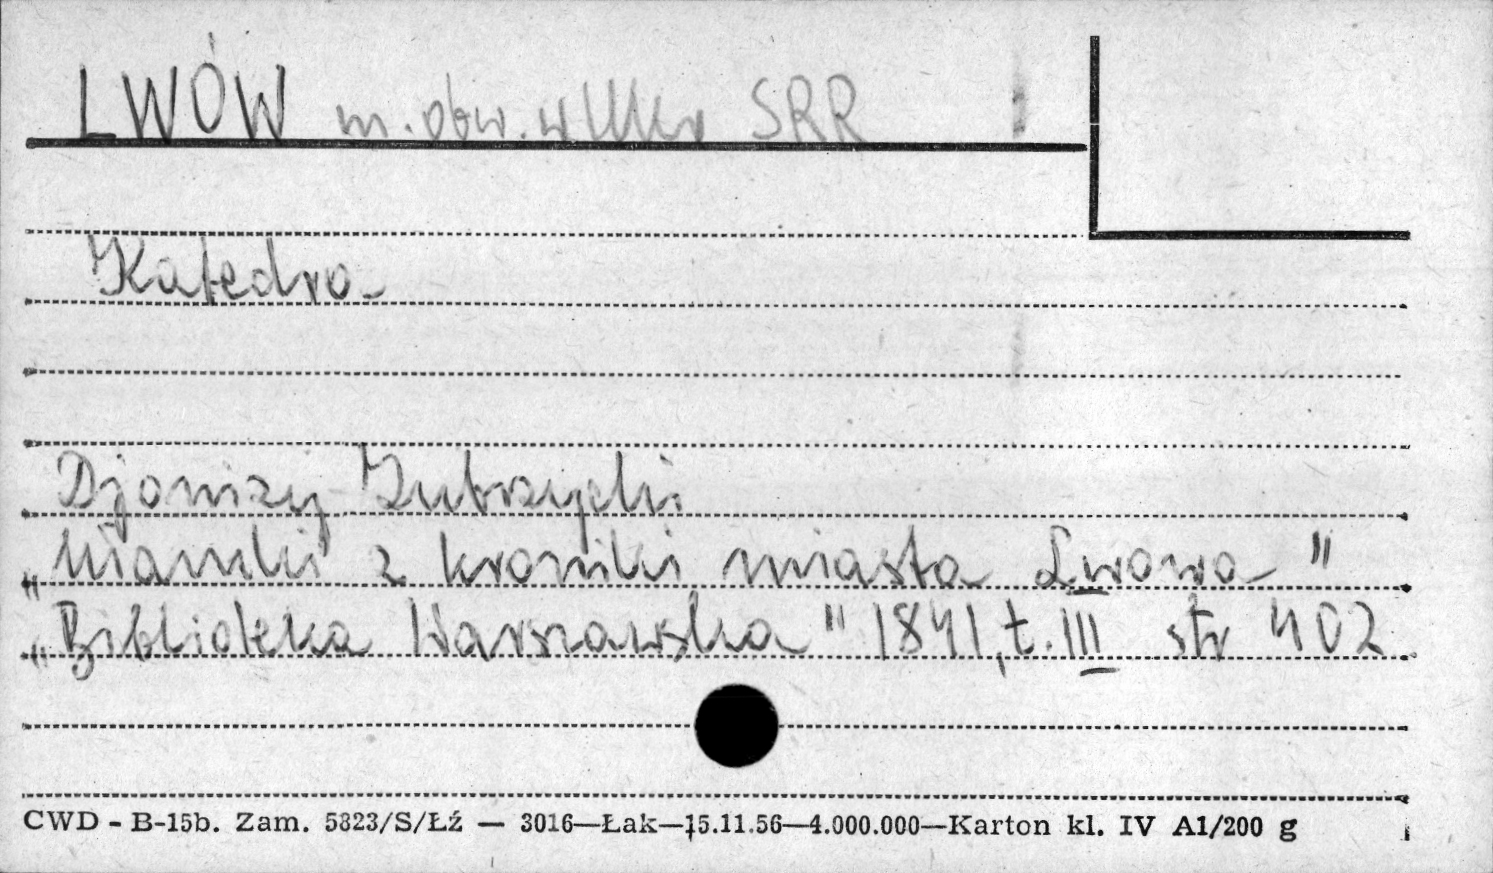 LWÓW m. obw. w Ukr SRR
Katedra
Djonizy Zubrzycki
„Wianeki z kroniki miasta Lwowa"
„Biblioteka Warszawska" 1841, t. III str 402
CWD - B-15b. Zam. 5823/S/Łź — 3016—Łak—15.11.56—4.000.000—Karton kl. IV A1/200 g